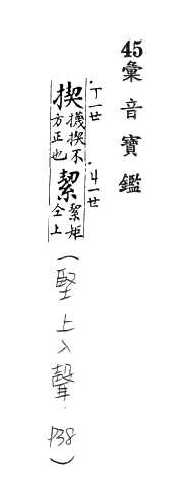 45彙音寶鑑
˙ㄒㄧㄝ ˙ㄐㄧㄝ
揳 揳不
方正也
絜 絜矩
仝上
(堅上入聲 P38)